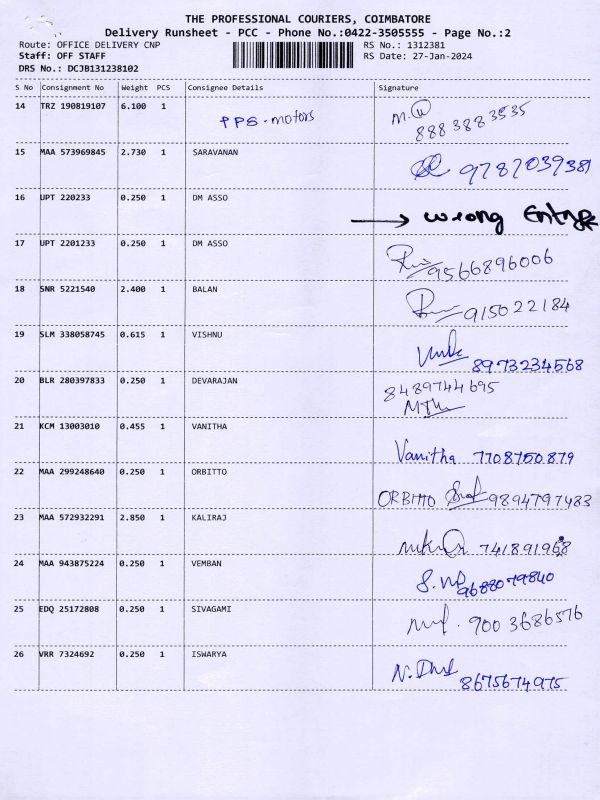 THE PROFESSIONAL COURIERS, COIMBATORE
Delivery Runsheet - PCC - Phone No.:0422-3505555 - Page No.:2
Route: OFFICE DELIVERY CNP RS No.: 1312381
Staff: OFF STAFF RS Date: 27-Jan-2024
DRS No.: DCJB131238102
S No Consignment No Weight PCS Consignee Details Signature
14 TRZ 190819107 6.100 1 PPS-motors 8883883535
15 MAA 573969845 2.730 1 SARAVANAN 9787039381
16 UPT 220233 0.250 1 DM ASSO → Wrong Entry
17 UPT 2201233 0.250 1 DM ASSO 9566896006
18 SNR 5221540 2.400 1 BALAN 915022184
19 SLM 338058745 0.615 1 VISHNU 8973234568
20 BLR 280397833 0.250 1 DEVARAJAN 8489744695
21 KCM 13003010 0.455 1 VANITHA Vanitha 7708750879
22 MAA 299248640 0.250 1 ORBITTO ORBITTO 9894797483
23 MAA 572932291 2.850 1 KALIRAJ 741891968
24 MAA 943875224 0.250 1 VEMBAN 9688079840
25 EDQ 25172808 0.250 1 SIVAGAMI 9003686576
26 VRR 7324692 0.250 1 ISWARYA 8675674975